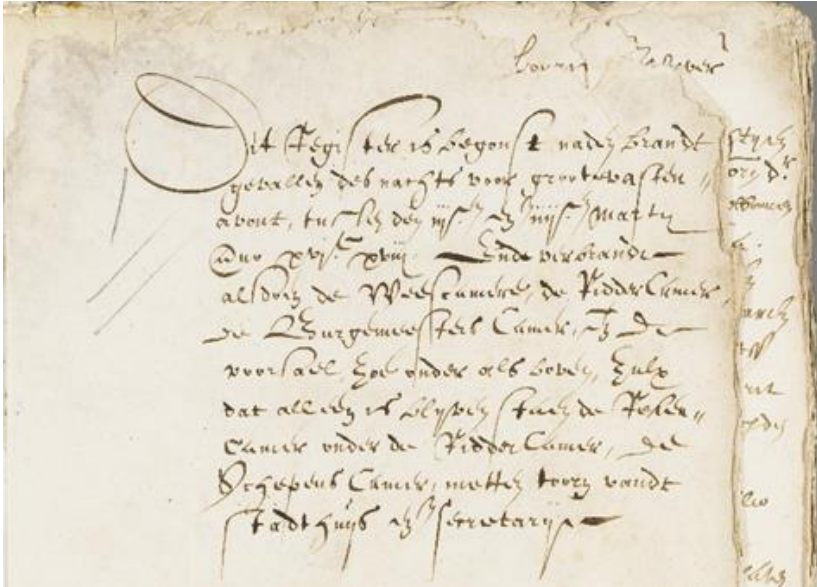 Dit Register is begonst naden brandt
gevallen des nachts voor grootevasten„
avont, tusschen den iijen en iiijen Martij
Anno xvjc xviij. Ende verbrande
alsdoen de Weescamere, de Ridder Camer,
de Burgemeesters Camer, en de
voorsael zoe onder als boven, zulx
dat alleen is blyven staen de Rosen„
Camer onder de Ridder Camer, de
Schepens Camer, metten toorn vandt
stadthuijs en secretarije